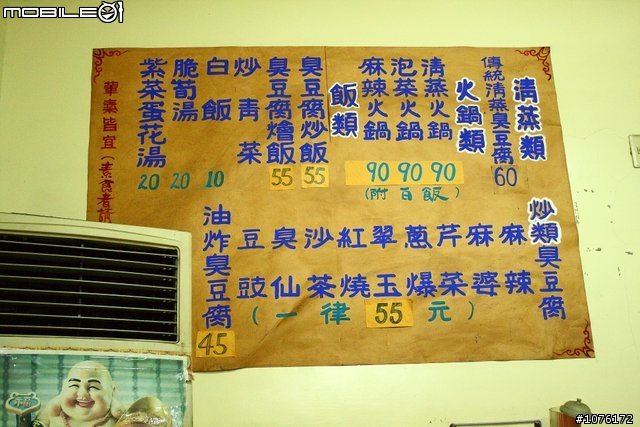 MOBILE01
清蒸類
傳統清蒸臭豆腐60
火鍋類
清蒸火鍋90
泡菜火鍋90
麻辣火鍋90
(附白飯)
飯類
臭豆腐炒飯55
臭豆腐燴飯55
炒青菜
白飯10
脆筍湯20
紫菜蛋花湯20
葷素皆宜(素食者請
炒類臭豆腐
麻辣
麻婆
芹菜
蔥爆
翠玉
紅燒
沙茶
臭仙
豆豉
(一律55元)
油炸臭豆腐45
#1076172